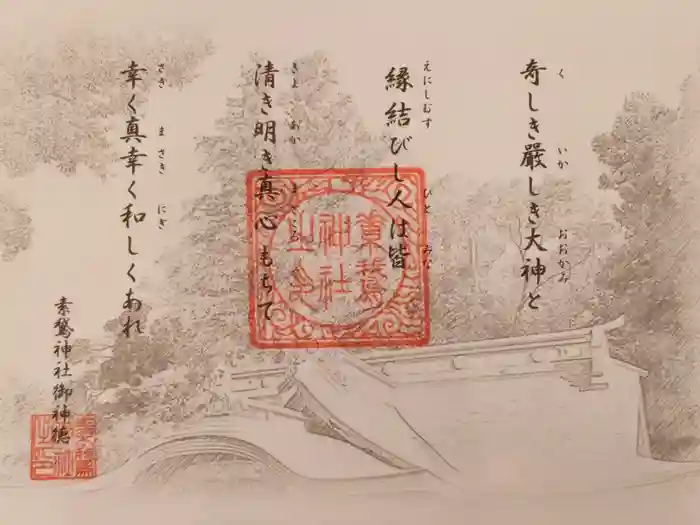 奇しき嚴しき大神と
く いか おおかみ
縁結びし人は皆
えにしむす ひと みな
清き明き真心もちて
きよ あか
幸く真幸く和しくあれ
さき まさき にぎ
素鵞神社御神徳
素鵞
神社
之印